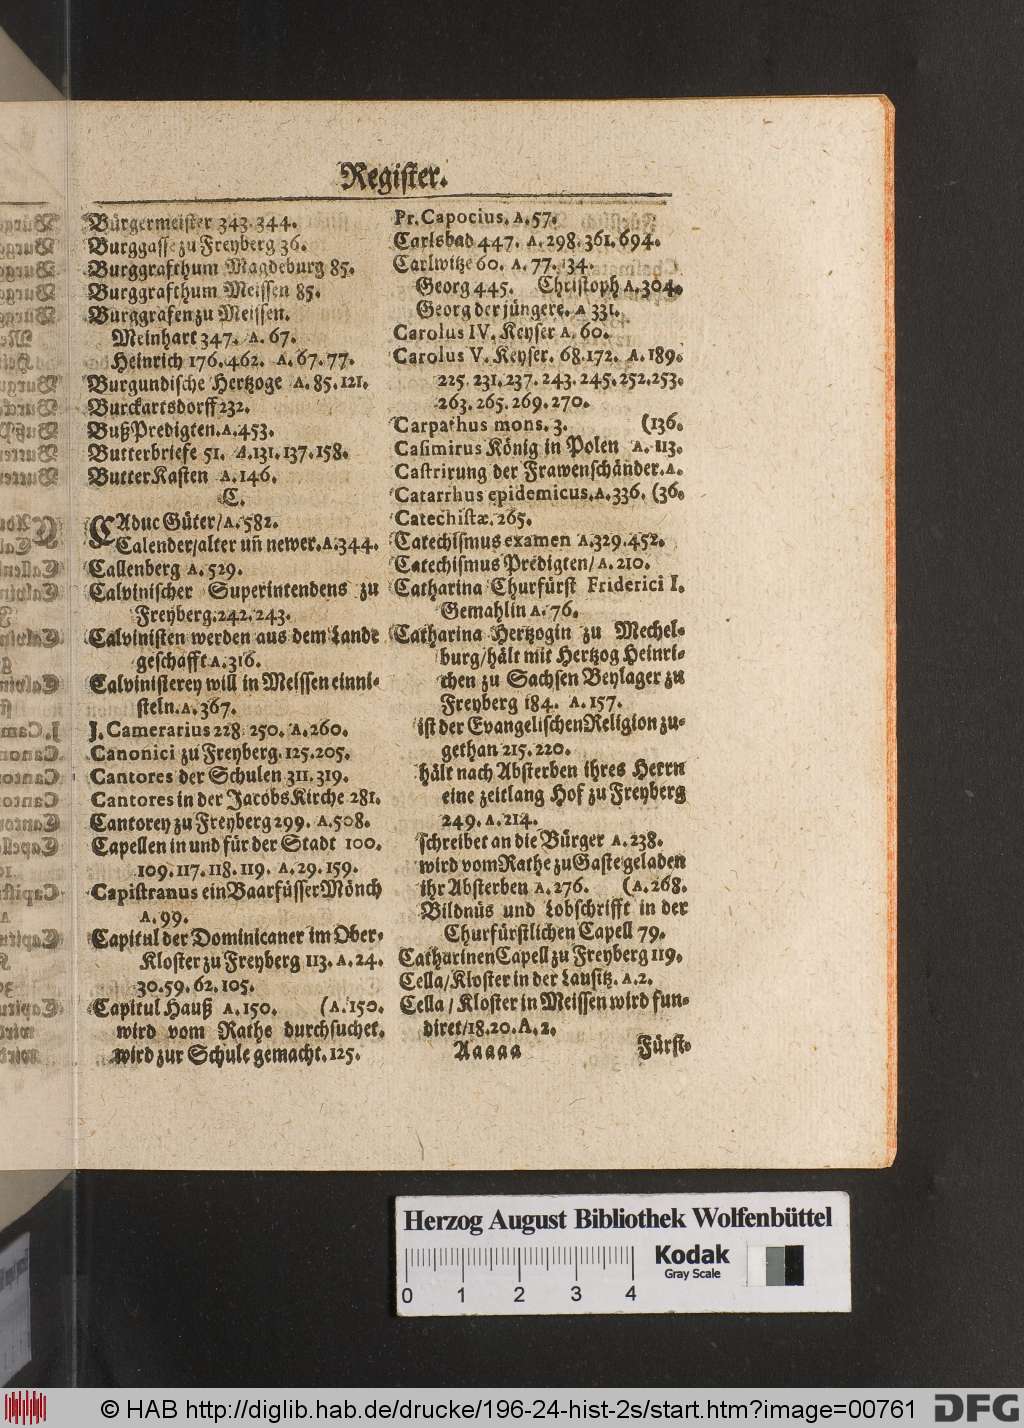 Register.
Bürgermeister 343. 344.
Burggasse zu Freyberg 36.
Burggrafthum Magdeburg 85.
Burggrafthum Meissen 85.
Burggrafen zu Meissen.
Meinhart 347. A. 67.
Heinrich 176. 462. A. 67. 77.
Burgundische Hertzoge A. 85. 121.
Burckartsdorff 232.
Buß Predigten. A. 453.
Butterbriefe 51. A. 131. 137. 158.
Butter Kasten A. 146.
C.
CAduc Güter/ A. 582.
Calender/ alter uñ newer. A. 344.
Callenberg A. 529.
Calvinischer Superintendens zu
Freyberg. 242. 243.
Calvinisten werden aus dem Lande
geschafft A. 316.
Calvinisterey will in Meissen einni-
steln. A. 367.
J. Camerarius 228. 250. A. 260.
Canonici zu Freyberg. 125. 205.
Cantores der Schulen 311. 319.
Cantores in der Jacobs Kirche 281.
Cantorey zu Freyberg 299. A. 508.
Capellen in und für der Stadt 100.
109. 117. 118. 119. A. 29. 159.
Capistranus ein Baarfüsser Mönch
A. 99.
Capitul der Dominicaner im Ober-
Kloster zu Freyberg 113. A. 24.
30. 59. 62. 105.
Capitul Hauß A. 150. (A. 150.
wird vom Rathe durchsuchet.
wird zur Schule gemacht. 125.
Pr. Capocius. A. 57.
Carlsbad 447. A. 298. 361. 694.
Carlwitze 60. A. 77. 134.
Georg 445. Christoph A. 304.
Georg der jüngere. A 331.
Carolus IV. Keyser A. 60.
Carolus V. Keyser. 68. 172. A. 189.
225. 231. 237. 243. 245. 252. 253.
263. 265. 269. 270.
Carpathus mons. 3. (136.
Casimirus König in Polen A. 113.
Castrirung der Frawenschänder. A.
Catarrhus epidemicus. A. 336. (36.
Catechistæ. 265.
Catechismus examen A. 329. 452.
Catechismus Predigten/ A. 210.
Catharina Churfürst Friderici I.
Gemahlin A. 76.
Catharina Hertzogin zu Mechel-
burg/ hält mit Hertzog Heinri-
chen zu Sachsen Beylager zu
Freyberg 184. A. 157.
ist der Evangelischen Religion zu-
gethan 215. 220.
hält nach Absterben ihres Herrn
eine zeitlang Hof zu Freyberg
249. A. 214.
schreibet an die Bürger A. 238.
wird vom Rathe zu Gaste geladen
ihr Absterben A. 276. (A. 268.
Bildnüs und Lobschrifft in der
Churfürstlichen Capell 79.
Catharinen Capell zu Freyberg 119.
Cella/ Kloster in der Lausitz. A. 2.
Cella/ Kloster in Meissen wird fun-
diret/ 18. 20. A. 2.
Aaaaa Fürst-
Herzog August Bibliothek Wolfenbüttel
Kodak
Gray Scale
0 1 2 3 4
© HAB http://diglib.hab.de/drucke/196-24-hist-2s/start.htm?image=00761
DFG